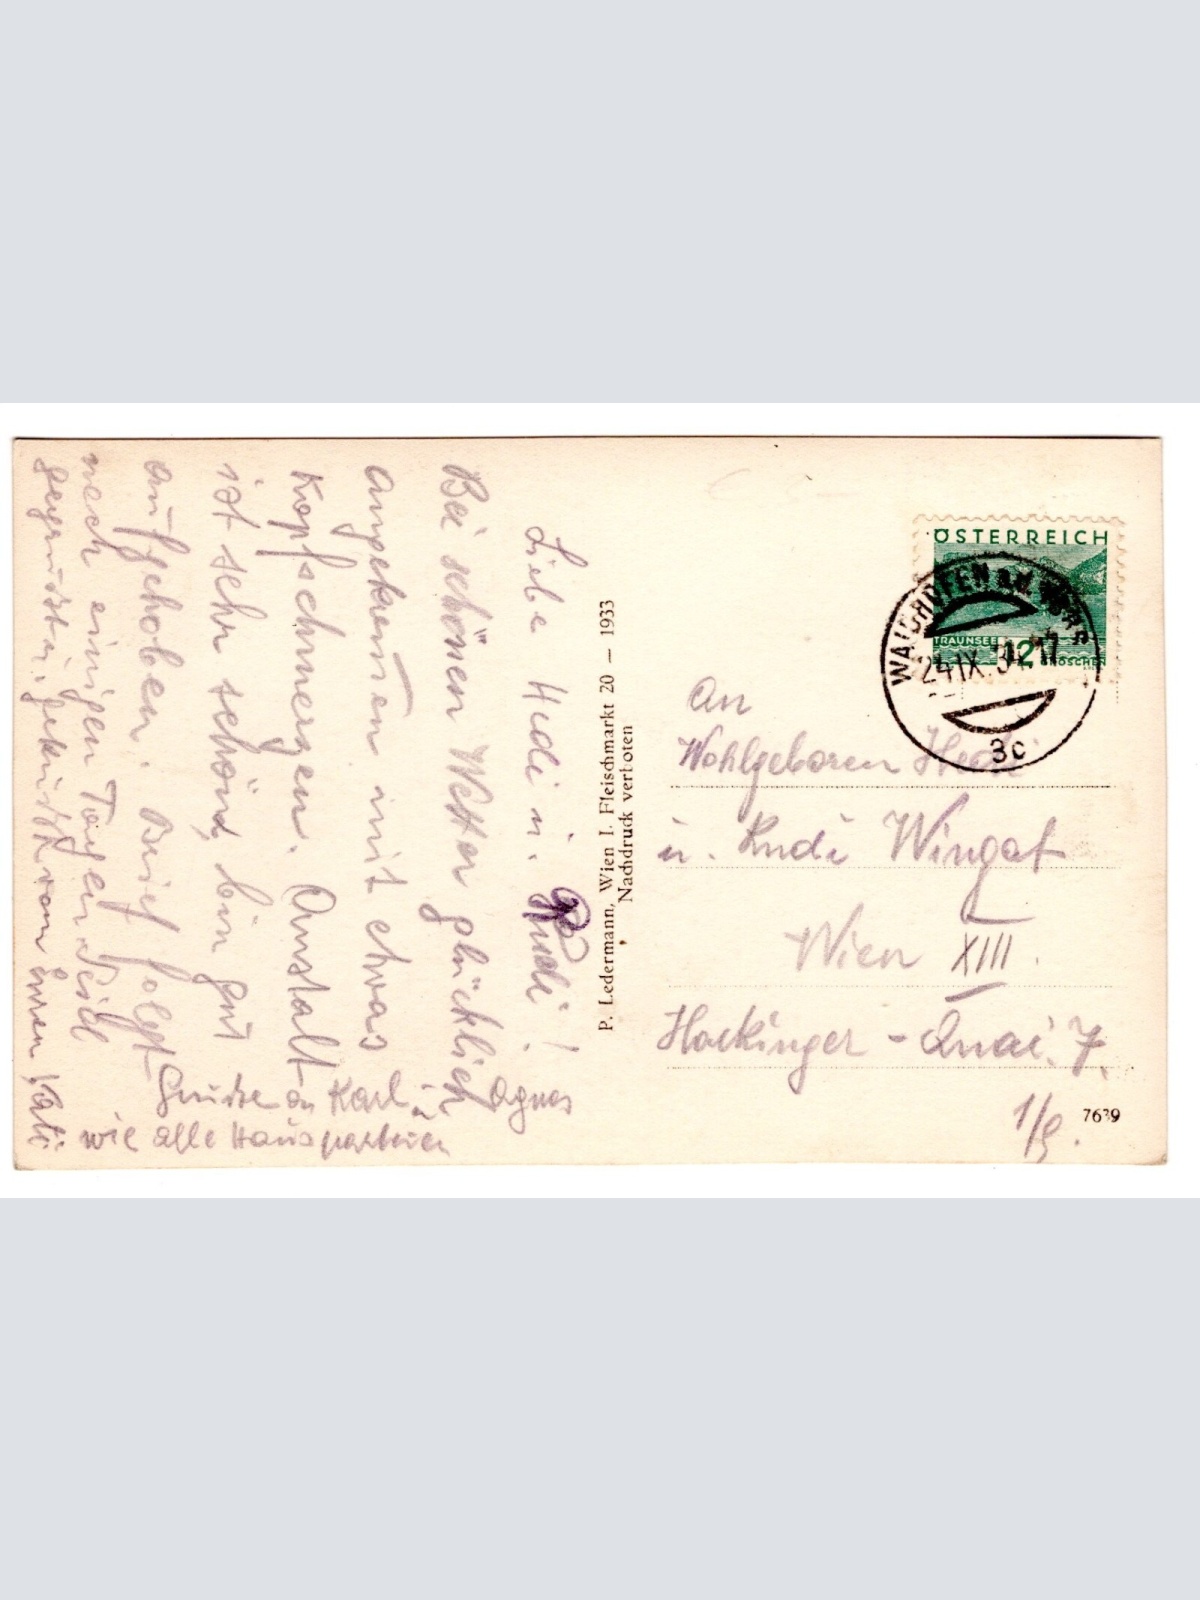 Liebe Hedi u. Rudi!
Bei schönen Wetter glücklich
angekomen mit etwas
Kopfschmerzen. Anstalt
ist sehr schön, bin gut
aufgehoben. Brief folgt
nach einigen Tagen. Seid
gegrüsst u. geküsst von Euren Vati
Grüsse an Karl u. Agnes
wie alle Hausparteien
P. Ledermann, Wien I. Fleischmarkt 20 — 1933
Nachdruck verboten
ÖSTERREICH
TRAUNSEE
12
GROSCHEN
WAIDHOFEN a.d. YBBS
24.IX.34.17
3c
An
Wohlgeboren Hedi
u. Rudi Wingat
Wien XIII.
Hackinger-Quai. 7.
7639